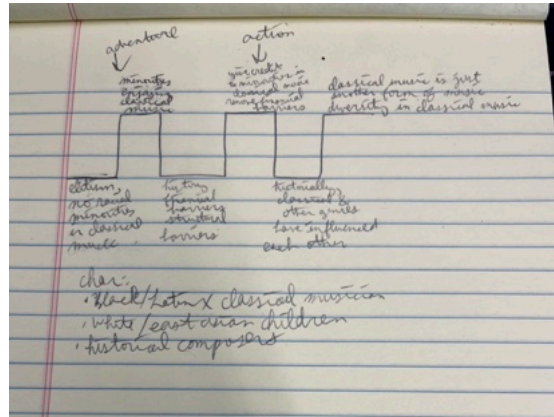 adventure
action
minorities
enjoying
classical
music
give credit
to minorities in
classical music
remove financial
barriers
classical music is just
another form of music
diversity in classical music
elitism,
no racial
minorities
in classical
music
history
financial
barriers
structural
barriers
historically,
classical &
other genres
have influenced
each other
char:
• Black/Latinx classical musician
• white/east asian children
• historical composers